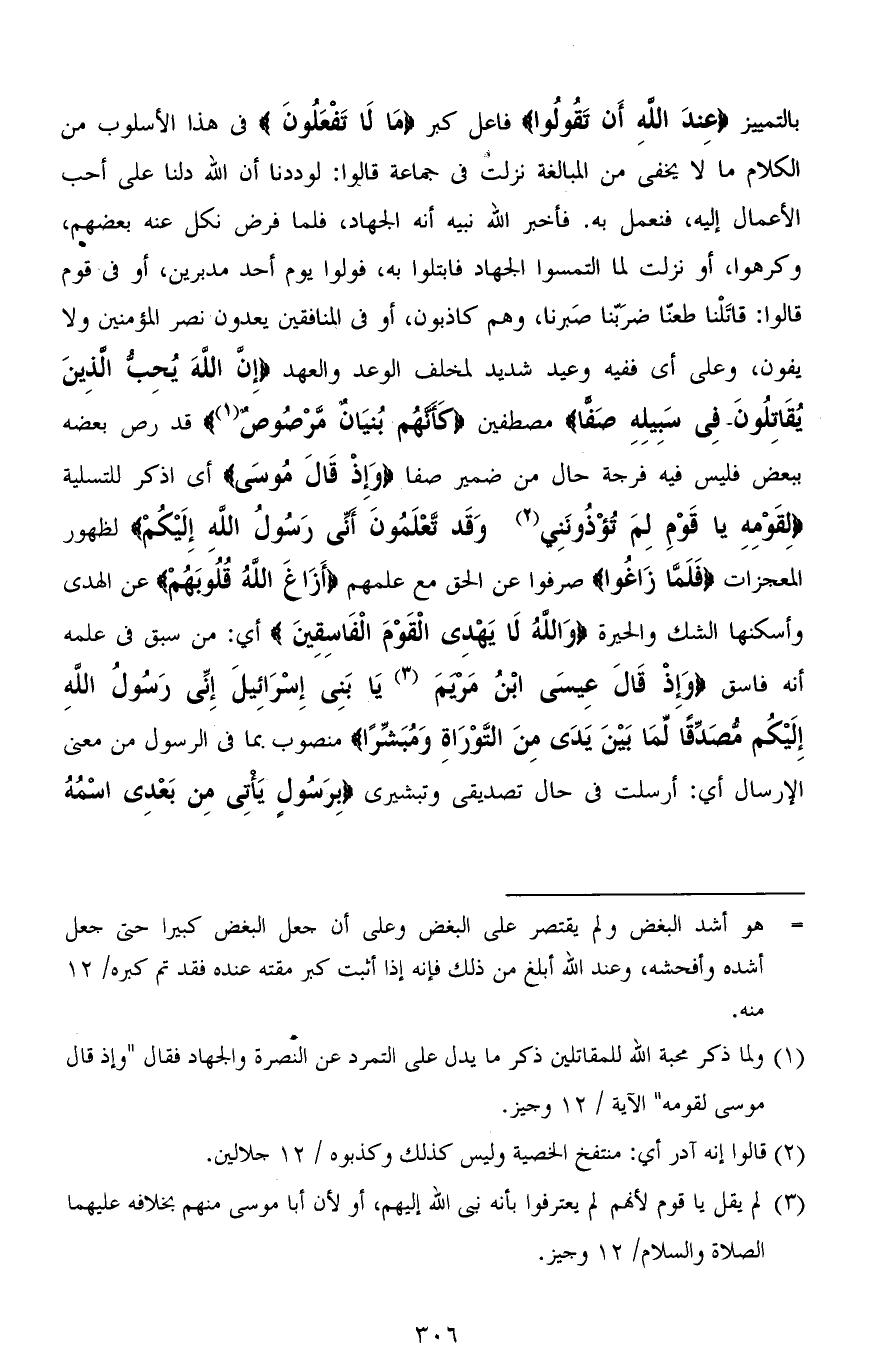 بالتمييز ﴿عِندَ اللَّهِ أَن تَقُولُوا﴾ فاعل كبر ﴿مَا لَا تَفْعَلُونَ﴾ فى هذا الأسلوب من
الكلام ما لا يخفى من المبالغة نزلت فى جماعة قالوا: لوددنا أن الله دلنا على أحب
الأعمال إليه، فنعمل به. فأخبر الله نبيه أنه الجهاد، فلما فرض نكل عنه بعضهم،
وكرهوا، أو نزلت لما التمسوا الجهاد فابتلوا به، فولوا يوم أحد مدبرين، أو فى قوم
قالوا: قاتَلْنا طعنّا ضربّنا صَبرنا، وهم كاذبون، أو فى المنافقين يعدون نصر المؤمنين ولا
يفون، وعلى أى ففيه وعيد شديد لمخلف الوعد والعهد ﴿إِنَّ اللَّهَ يُحِبُّ الَّذِينَ
يُقَاتِلُونَ فِى سَبِيلِهِ صَفًّا﴾ مصطفين ﴿كَأَنَّهُم بُنيَانٌ مَّرْصُوصٌ(١)﴾ قد رص بعضه
ببعض فليس فيه فرجة حال من ضمير صفا ﴿وَإِذْ قَالَ مُوسَى﴾ أى اذكر للتسلية
﴿لِقَوْمِهِ يا قَوْمِ لِمَ تُؤْذُونَنِي(٢) وَقَد تَّعْلَمُونَ أَنِّى رَسُولُ اللَّهِ إِلَيْكُمْ﴾ لظهور
المعجزات ﴿فَلَمَّا زَاغُوا﴾ صرفوا عن الحق مع علمهم ﴿أَزَاغَ اللَّهُ قُلُوبَهُمْ﴾ عن الهدى
وأسكنها الشك والحيرة ﴿وَاللَّهُ لَا يَهْدِى الْقَوْمَ الْفَاسِقِينَ﴾ أي: من سبق فى علمه
أنه فاسق ﴿وَإِذْ قَالَ عِيسَى ابْنُ مَرْيَمَ (٣) يَا بَنِى إِسْرَائِيلَ إِنِّى رَسُولُ اللَّهِ
إِلَيْكُم مُّصَدِّقًا لِّمَا بَيْنَ يَدَى مِنَ التَّوْرَاةِ وَمُبَشِّرًا﴾ منصوب بما فى الرسول من معنى
الإرسال أي: أرسلت فى حال تصديقى وتبشيرى ﴿بِرَسُولٍ يَأْتِى مِن بَعْدِى اسْمُهُ
= هو أشد البغض ولم يقتصر على البغض وعلى أن جعل البغض كبيرا حتى جعل
أشده وأفحشه، وعند الله أبلغ من ذلك فإنه إذا أثبت كبر مقته عنده فقد تم كبره/ ١٢
منه.
(١) ولما ذكر محبة الله للمقاتلين ذكر ما يدل على التمرد عن النصرة والجهاد فقال "وإذ قال
موسى لقومه" الآية / ١٢ وجيز.
(٢) قالوا إنه آدر أي: منتفخ الخصية وليس كذلك وكذبوه / ١٢ جلالين.
(٣) لم يقل يا قوم لأنهم لم يعترفوا بأنه نبى الله إليهم، أو لأن أبا موسى منهم بخلافه عليهما
الصلاة والسلام/ ١٢ وجيز.
٣٠٦